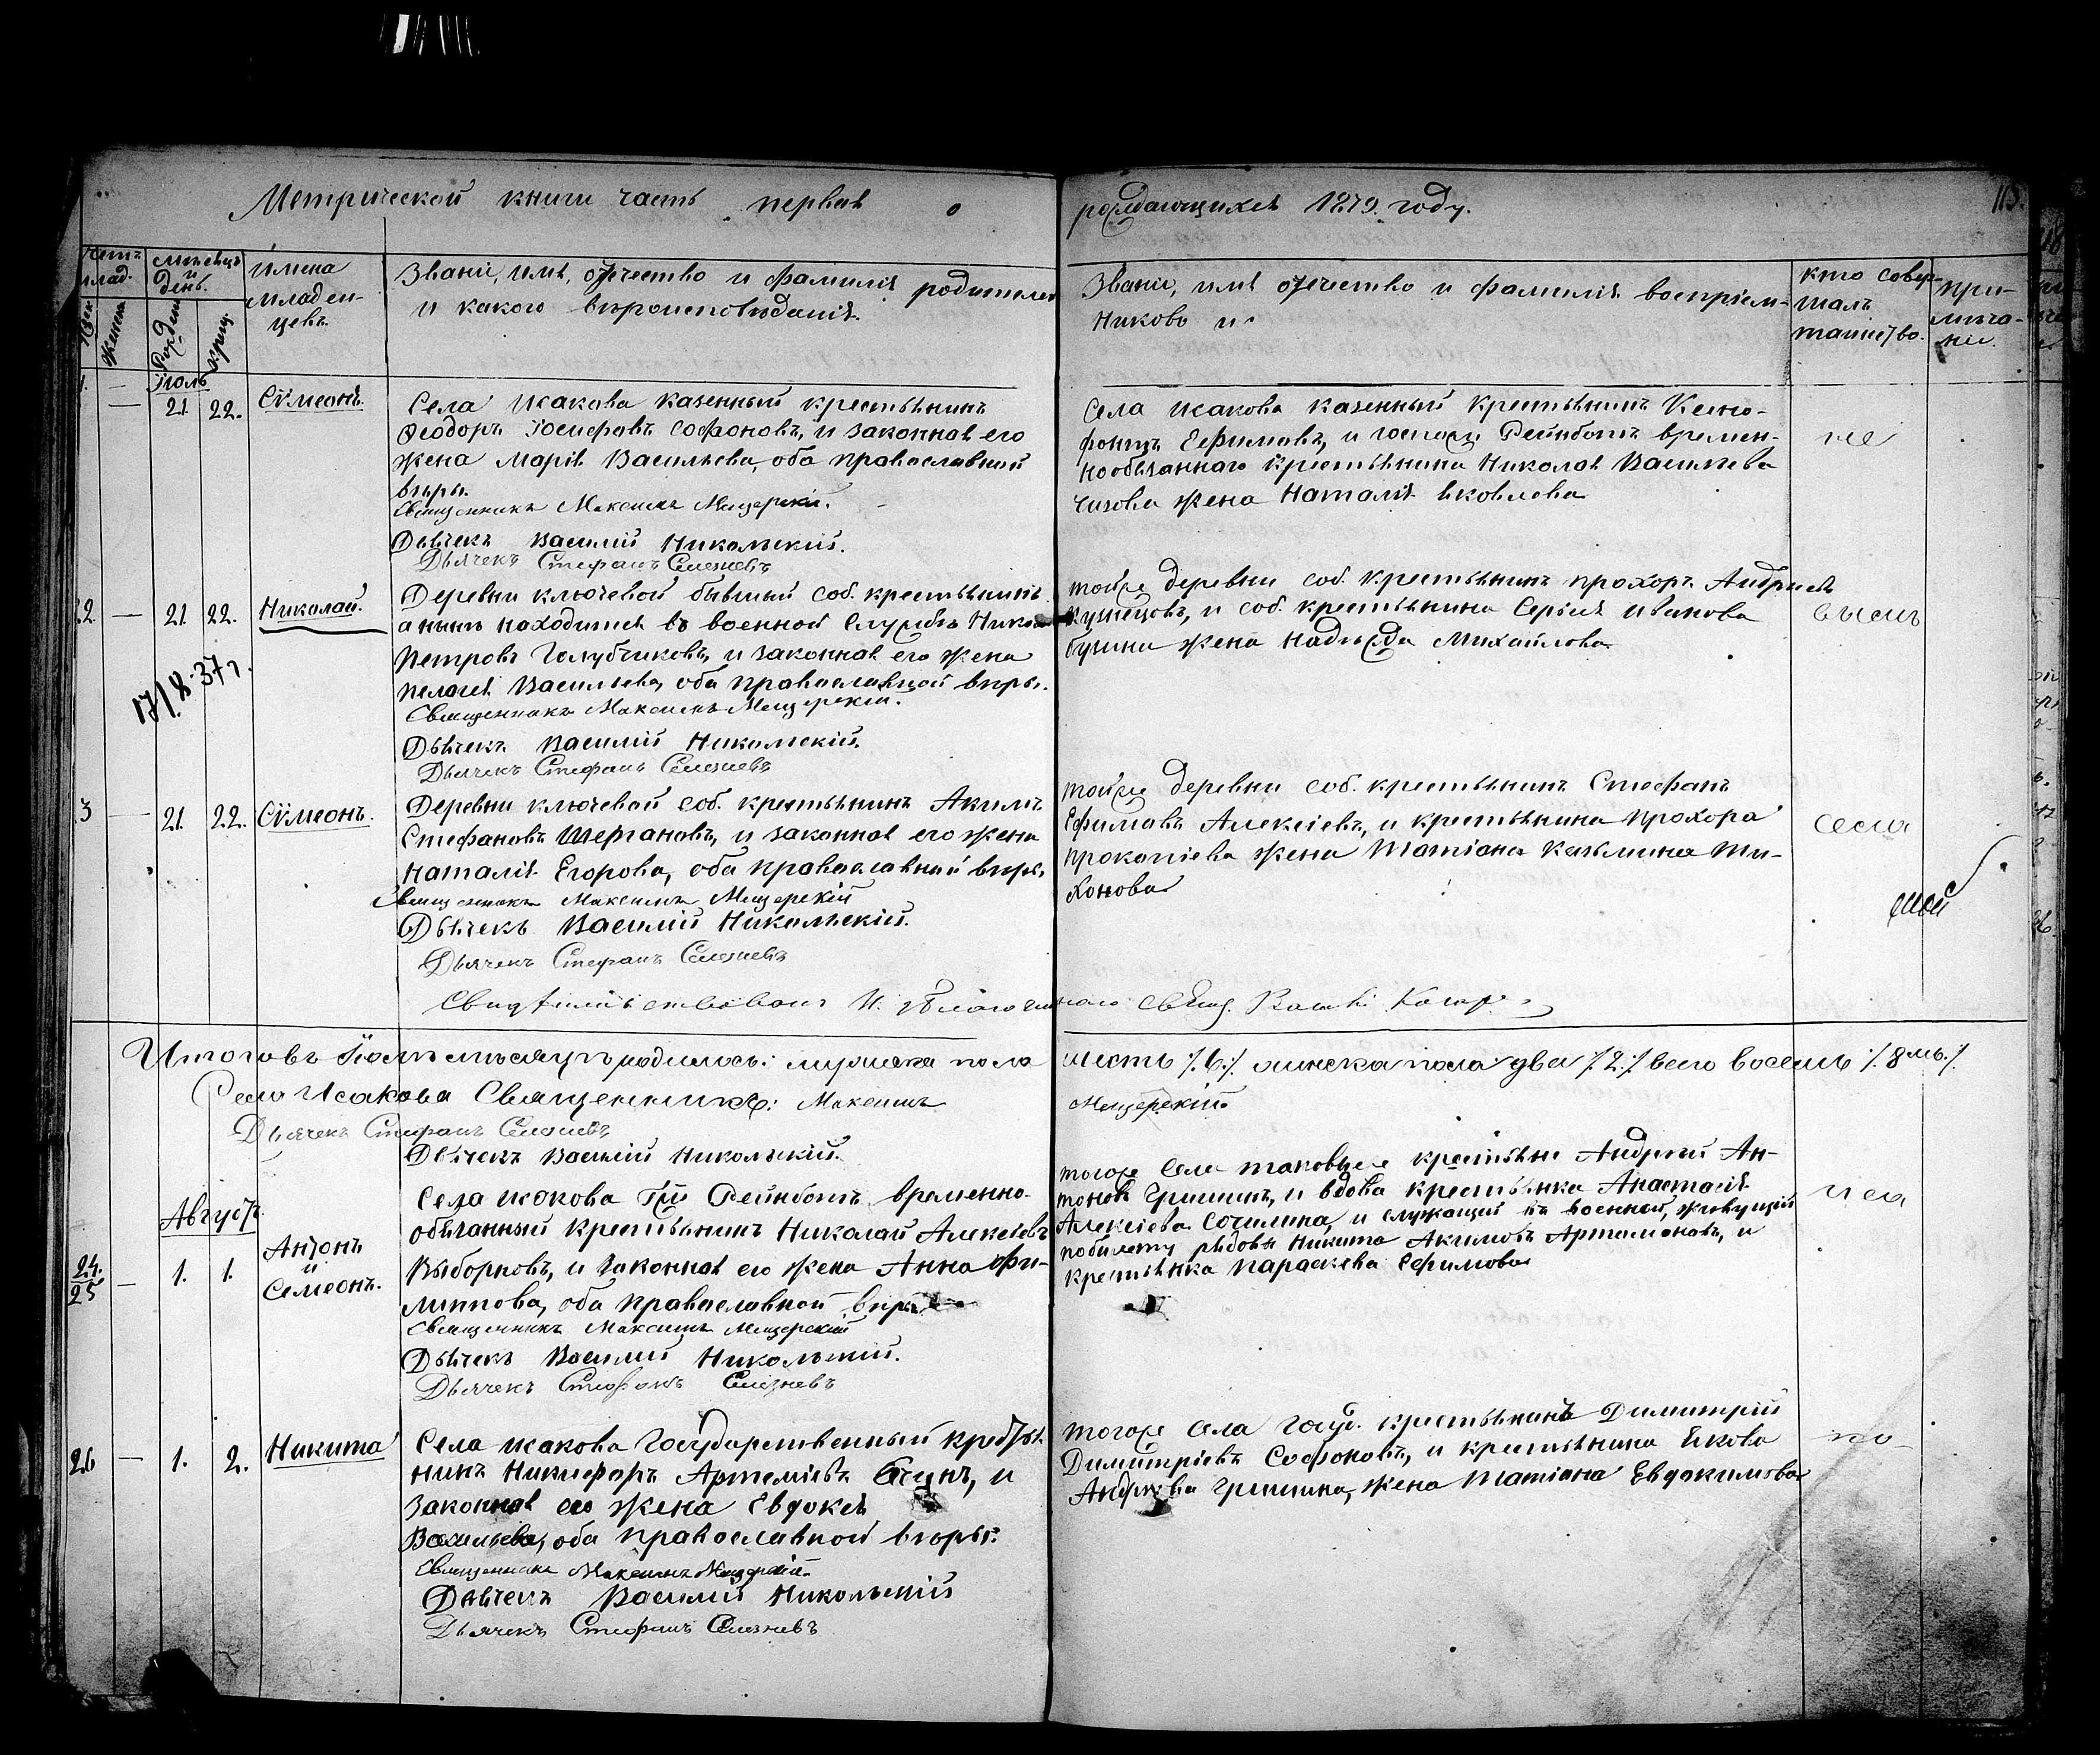 Метрической книги часть первая о
рождающихся 1879. году.
115.
Счетъ млад.
мѣсяцъ и день.
Имена младен-
цевъ.
Званіе, имя, отчество и фамилія родителей
и какого вѣроисповѣданія.
Званіе, имя отчество и фамилія воспріем-
никовъ
кто совер-
шалъ
таинство.
при-
мѣча-
ніе.
Женск
Рожден
крещ.
Іюль
21 22. Сѷмеонъ.
Села Исакова казенный крестьянинъ
Ѳеодоръ Іосифовъ Софоновъ, и законная его
жена Марія Васильева, оба православной
вѣры.
Священникъ Максимъ Мещерскій.
Дьячекъ Василій Никольскій.
Дьячекъ Стефанъ Селезневъ
Села Исакова казенный крестьянинъ Ксено-
фонтъ Ефимовъ, и господ. Рейнботъ времен-
нообязаннаго крестьянина Николая Васильева
Чизова жена Наталія Яковлева
22. — 21 22. Николай.
17/8-37г.
Деревни ключевой бывшій соб. крестьянинъ
а нынѣ находится въ военной службѣ Никол
Петровъ Голубчиковъ, и законная его жена
Пелагея Васильева, оба православной вѣры.
Священникъ Максимъ Мещерскій.
Дьячекъ Василій Никольскій.
Дьячекъ Стефанъ Селезневъ
тойже деревни соб. крестьянинъ Прохоръ Андреевъ
Кузнецовъ, и соб. крестьянина Сергія Иванова
жена Надежда Михайлова.
3 — 21. 22. Сѷмеонъ.
Деревни ключевой соб. крестьянинъ Акимъ
Стефановъ Шергановъ, и законная его жена
Наталія Егорова, оба православной вѣры.
Священникъ Максимъ Мещерскій
Дьячекъ Василій Никольскій.
Дьячекъ Стефанъ Селезневъ
тойже деревни соб. крестьянинъ Стефанъ
Ефимовъ Алексіевъ, и крестьянина Прохора
Прокопіева жена Татіана Казьмина Ти-
хонова
Свидѣтельствовалъ И. д. благочиннаго Свящ.
Итого въ Іюлѣ мѣсяцѣ родилось: мужеска пола
шесть /.6./. женска пола два /.2./. всего восемь /.8мь./.
Село Исакова Священникъ: Максимъ
Мещерскій.
Дьячекъ Стефанъ Селезневъ
Дьячекъ Василій Никольскій.
Августъ
24.
25 — 1. 1. Антонъ
и
Семеонъ.
Села Исакова Гжи Рейнботъ временно-
обязанный крестьянинъ Николай Алексіевъ
Выборновъ, и законная его жена Анна Фи-
липпова, оба православной вѣры
Священникъ Максимъ Мещерскій
Дьячекъ Василій Никольскій.
Дьячекъ Стефанъ Селезневъ
тогоже Села таковыеже крестьяне Андрей Ан-
тоновъ Гришинъ, и вдова крестьянка Анастасія
Алексіева Сочилина, и служащій въ военной, живущій
по билету рядовой Никита Акимовъ Артамоновъ, и
крестьянка Параскева Ефимова
26 — 1. 2. Никита
Села Исакова Государственный крестья-
нинъ Никифоръ Артеміевъ и
законная его жена Евдокія
Васильева, оба православной вѣры.
Священникъ Максимъ Мещерскій.
Дьячекъ Василій Никольскій
Дьячекъ Стефанъ Селезневъ
тогоже Села Госуд. крестьянинъ Димитрій
Димитріевъ Софоновъ, и крестьянина Якова
Андреева Гришина, жена Татіана Евдокимова